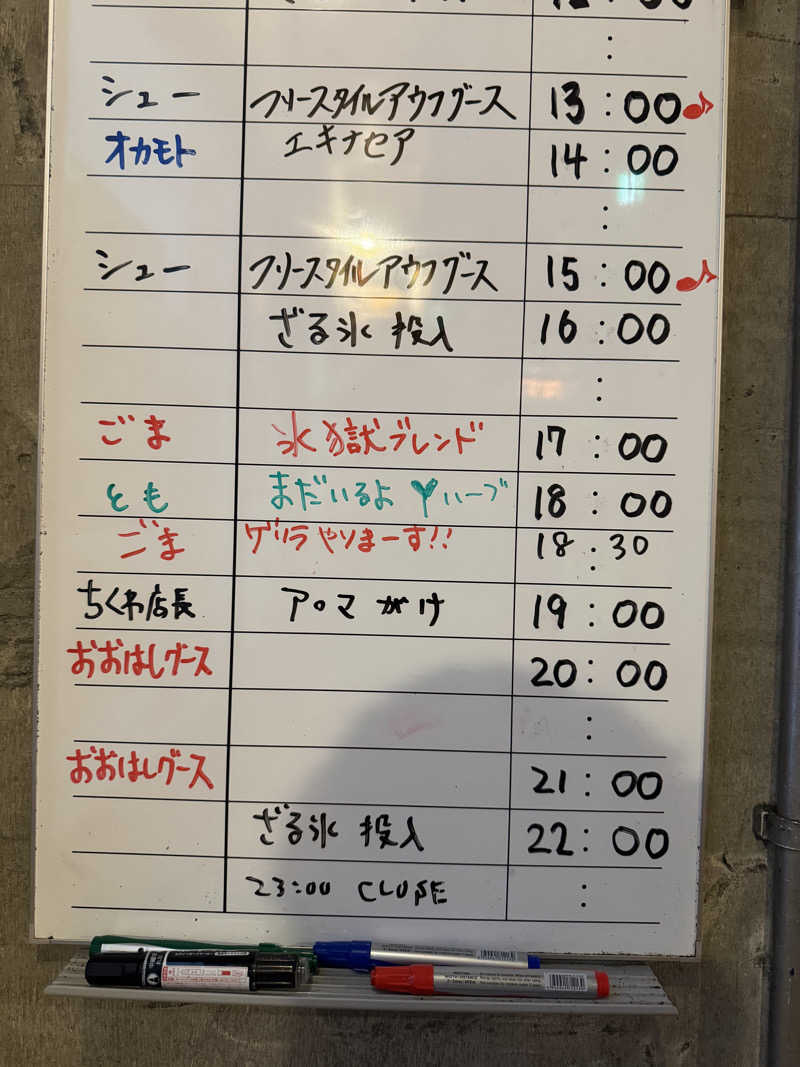 シュー フリースタイルアウフグース 13:00♪
オカモト エキナセア 14:00
:
シュー フリースタイルアウフグース 15:00♪
ざる氷 投入 16:00
:
ごま 氷獄ブレンド 17:00
とも まだいるよ ハーブ 18:00
ごま ゲリラやりまーす!! 18:30
ちくわ店長 アロマがけ 19:00
おおはしグース 20:00
:
おおはしグース 21:00
ざる氷 投入 22:00
23:00 CLOSE :